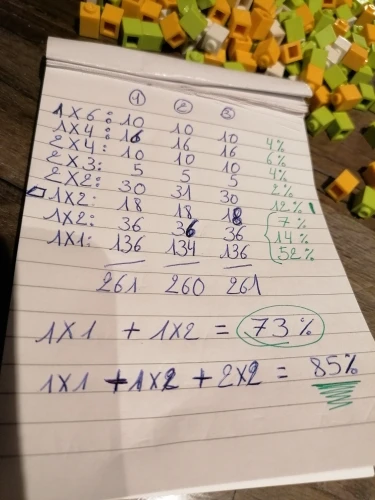 ① ② ③
1X6: 10 10 10 4%
1X4: 16 16 16 6%
2X4: 10 10 10 4%
2X3: 5 5 5 2%
2X2: 30 31 30 12%
1X2: 18 18 18 7%
1X2: 36 36 36 14%
1X1: 136 134 136 52%
261 260 261
1X1 + 1X2 = 73%
1X1 + 1X2 + 2X2 = 85%